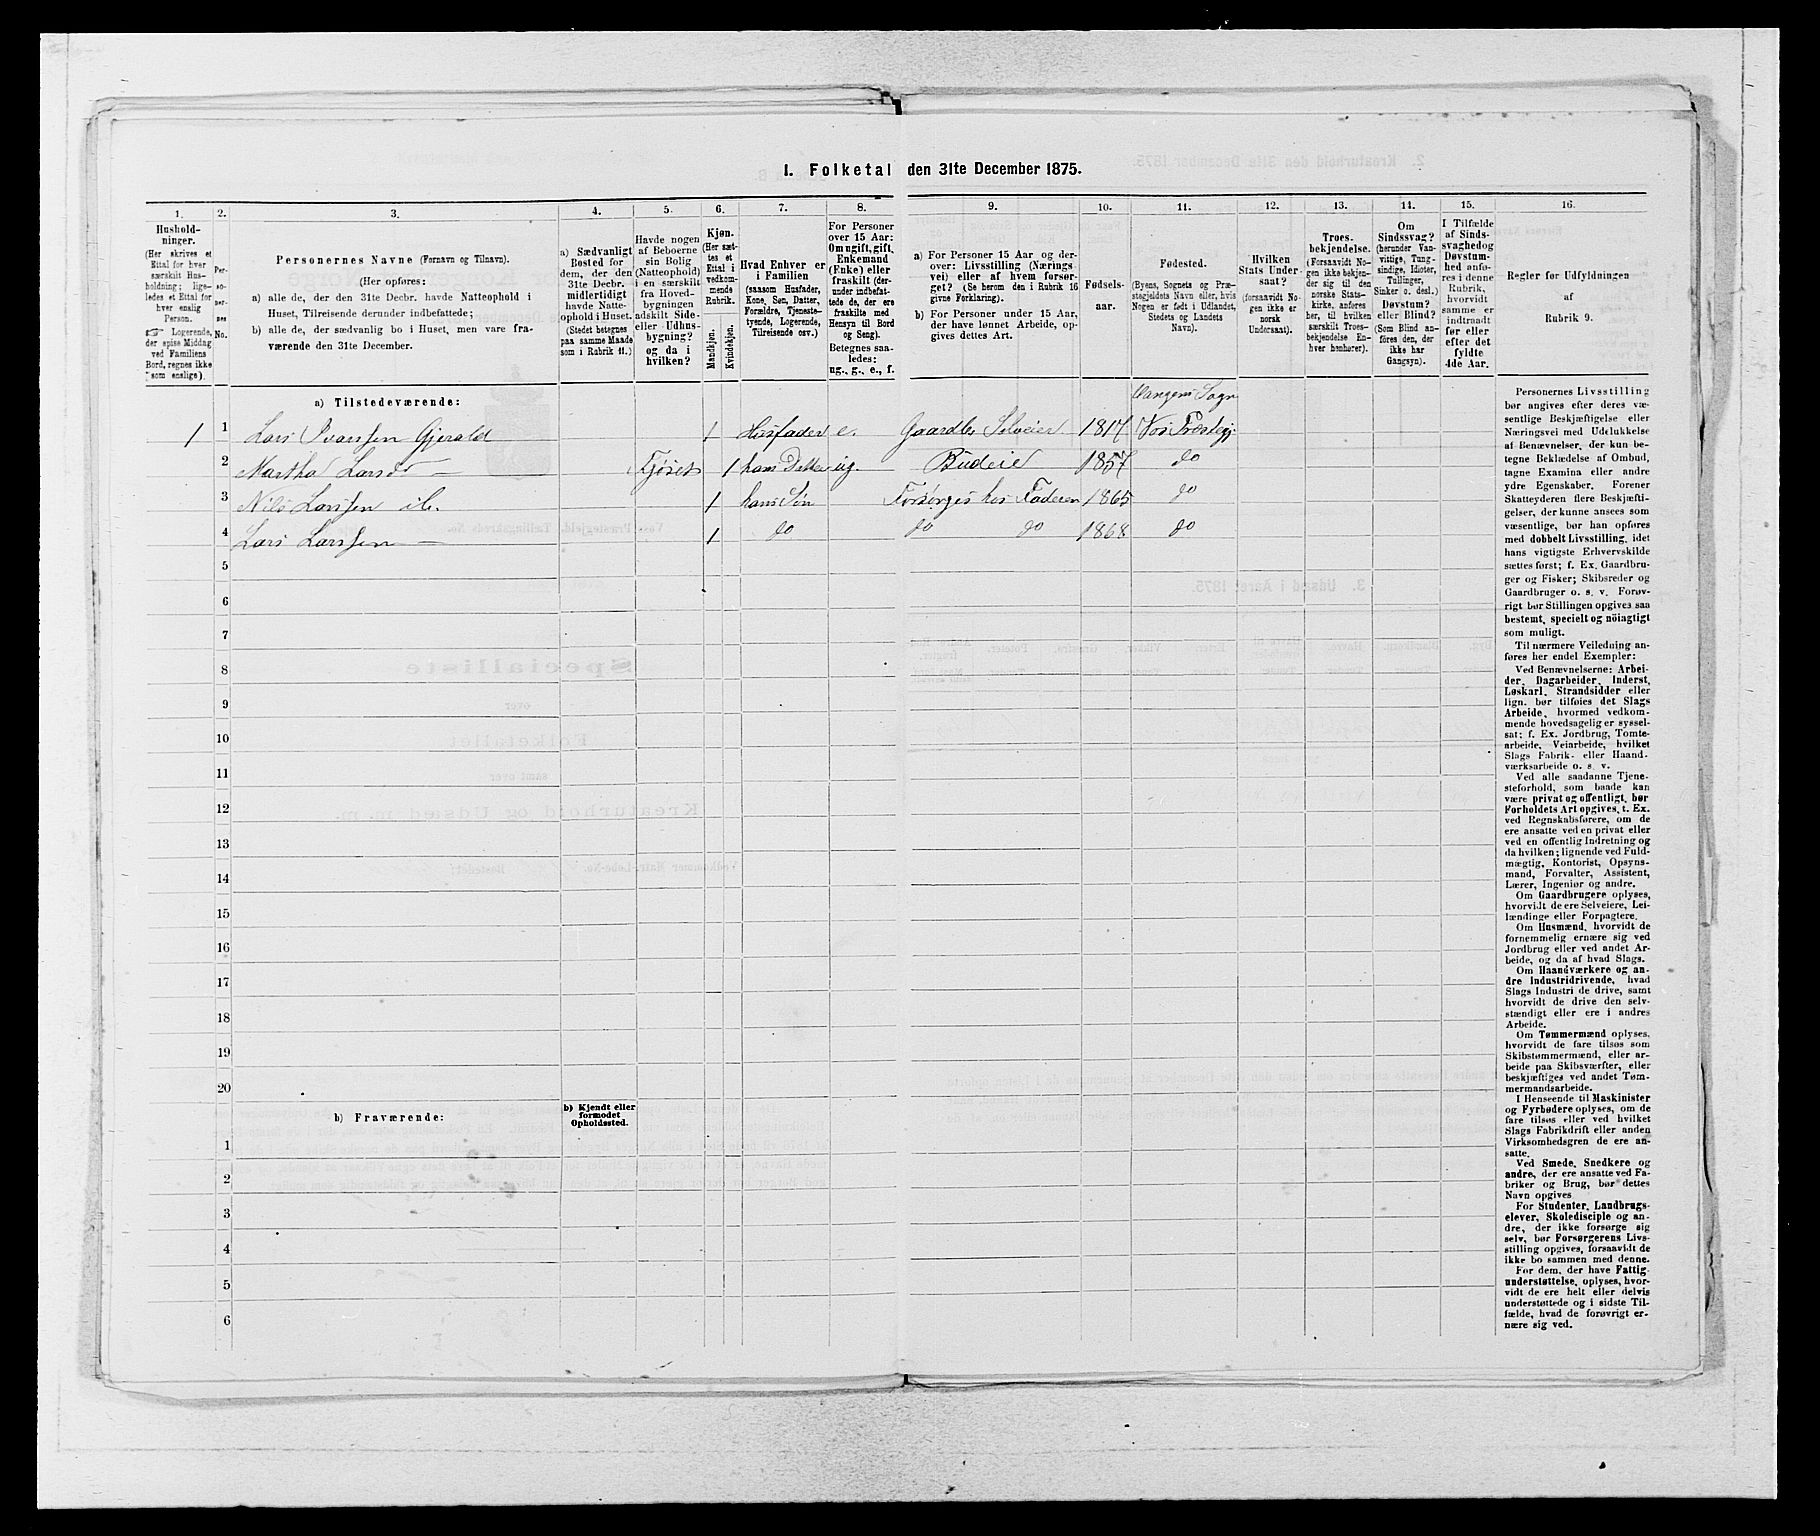 I. Folketal den 31te December 1875.
1.
2.
3.
4.
5.
6.
7.
8.
9.
10.
11.
12.
13.
14.
15.
16.
Husholdninger.
(Her skrives et
Ettal for hver
særskilt Husholdning; ligeledes et Ettal for
hver enslig
Person.
Logerende,
der spise Middag
ved Familiens
Bord, regnes ikke
som enslige).
Personernes
No.
Personernes Navne (Fornavn og Tilnavn).
(Her opføres:
a) alle de, der den 31te Decbr. havde Natteophold i
Huset, Tilreisende derunder indbefattede;
b) alle de, der sædvanlig bo i Huset, men vare fraværende den 31te December.
a) Sædvanligt
Bosted for
dem, der den
31te Decbr.
midlertidigt
havde Natteophold i Huset.
(Stedet betegnes
paa samme Maade
som i Rubrik 11.)
Havde nogen
af Beboerne
sin Bolig
(Natteophold)
i en særskilt
fra Hovedbygningen
adskilt Side- eller Udhusbygning?
og da i
hvilken?
Kjøn.
(Her sættes et
Ettal i
vedkommende
Rubrik.
Mandkjøn.
Kvindekjøn.
Hvad Enhver er
i Familien
(saasom Husfader,
Kone, Søn, Datter,
Forældre, Tjenestetyende, Logerende,
Tilreisende osv.)
For Personer
over 15 Aar:
Om ugift, gift,
Enkemand
(Enke) eller
fraskilt (derunder indbefattede de, der ere
fraskilte med
Hensyn til Bord
og Seng).
Betegnes saaledes:
ug., g., e., f.
a) For Personer 15 Aar og derover: Livsstilling (Næringsvei) eller af hvem forsørget? (Se herom den i Rubrik 16
givne Forklaring).
b) For Personer under 15 Aar,
der have lønnet Arbeide, opgives dettes Art.
Fødselsaar.
Fødested.
(Byens, Sognets og Præstegjeldets Navn eller, hvis
Nogen er født i Udlandet,
Stedets og Landets
Navn).
Hvilken
Stats Undersaat?
(forsaavidt Nogen ikke er
norsk
Undersaat).
Troesbekjendelse.
(Forsaavidt Nogen ikke bekjender sig til den
norske Statskirke, anføres
her, til hvilken
særskilt Troesbekjendelse Enhver henhører).
Om
Sindssvag?
(herunder Vanvittige, Tungsindige, Idioter,
Tullinger,
Sinker o. desl.)
Døvstum?
eller Blind?
(Som Blind anføres den, der
ikke har
Gangsyn).
I Tilfælde
af Sindssvaghed og
Døvstumhed anføres i denne
Rubrik,
hvorvidt
samme er
indtraadt
før eller
efter det
fyldte
4de Aar.
Regler for Udfyldningen
af
Rubrik 9.
a) Tilstedeværende:
Vangens Sogn
1 1 Lars Ivarssen Gjerald 1 Husfader e. Gaardbr. Selveier 1817 Vos Præstegj.
2 Martha Larsdr — Fjöset 1 hans Datter ug. Budeie 1857 do
3 Nils Larssen 1 hans Søn Forsørges hos Faderen 1865 do
4 Lars Larssen — 1 do do do 1868 do
5
6
7
8
9
10
11
12
13
14
15
16
17
18
19
20
b) Fraværende:
b) Kjendt eller
formodet
Opholdssted.
1
2
3
4
5
6
Personernes Livsstilling
bør angives efter deres væsentlige Beskjæftigelse eller
Næringsvei med Udelukkelse
af Benævnelser, der kun betegne Beklædelse af Ombud,
tagne Examina eller andre
ydre Egenskaber. Forener
Skatteyderen flere Beskjæftigelser, der kunne ansees som
væsentlige, bør han opføres
med dobbelt Livsstilling, idet
hans vigtigste Erhvervskilde
sættes først; f. Ex. Gaardbruger og Fisker; Skibsreder og
Gaardbruger o. s. v. Forøvrigt bør Stillingen opgives saa
bestemt, specielt og nöiagtigt
som muligt.
Til nærmere Veiledning anføres her endel Exempler:
Ved Benævnelserne: Arbeider, Dagarbeider, Inderst,
Løskarl, Strandsidder eller
lign. bør tilføies det Slags
Arbeide, hvormed vedkommende hovedsagelig er sysselsat; f. Ex. Jordbrug, Tomtearbeide, Veiarbeide, hvilket
Slags Fabrik- eller Haandværksarbeide o. s. v.
Ved alle saadanne Tjenesteforhold, som baade kan
være privat og offentligt, bør
Forholdets Art opgives, t. Ex.
ved Regnskabsførere, om de
ere ansatte ved en privat eller
ved en offentlig Indretning og
da hvilken; lignende ved Fuldmægtig, Kontorist, Opsynsmand, Forvalter, Assistent,
Lærer, Ingeniør og andre.
Om Gaardbrugere oplyses,
hvorvidt de ere Selveiere, Leilændinge eller Forpagtere.
Om Husmænd, hvorvidt de
fornemmelig ernære sig ved
Jordbrug eller ved andet Arbeide, og da af hvad Slags.
Om Haandværkere og andre Industridrivende, hvad
Slags Industri de drive, samt
hvorvidt de drive den selvstændigt eller ere i andres
Arbeide.
Om Tømmermænd oplyses,
hvorvidt de fare tilsøs som
Skibstømmermænd, eller arbeide paa Skibsværfter, eller
beskjæftiges ved andet Tømmermandsarbeide.
I Henseende til Maskinister
og Fyrbødere oplyses, om de
fare tilsøs eller ved hvilket
Slags Fabrikdrift eller anden
Virksomhedsgren de ere ansatte.
Ved Smede, Snedkere og
andre, der ere ansatte ved Fabriker og Brug, bør dettes
Navn opgives
For Studenter, Landbrugselever, Skoledisciple og andre, der ikke forsørge sig
selv, bør Forsørgerens Livsstilling opgives, forsaavidt de
ikke bo sammen med denne.
For dem, der have Fattigunderstøttelse, oplyses, hvorvidt de ere helt eller delvis
understøttede og i sidste Tilfælde, hvad de forøvrigt ernære sig ved.